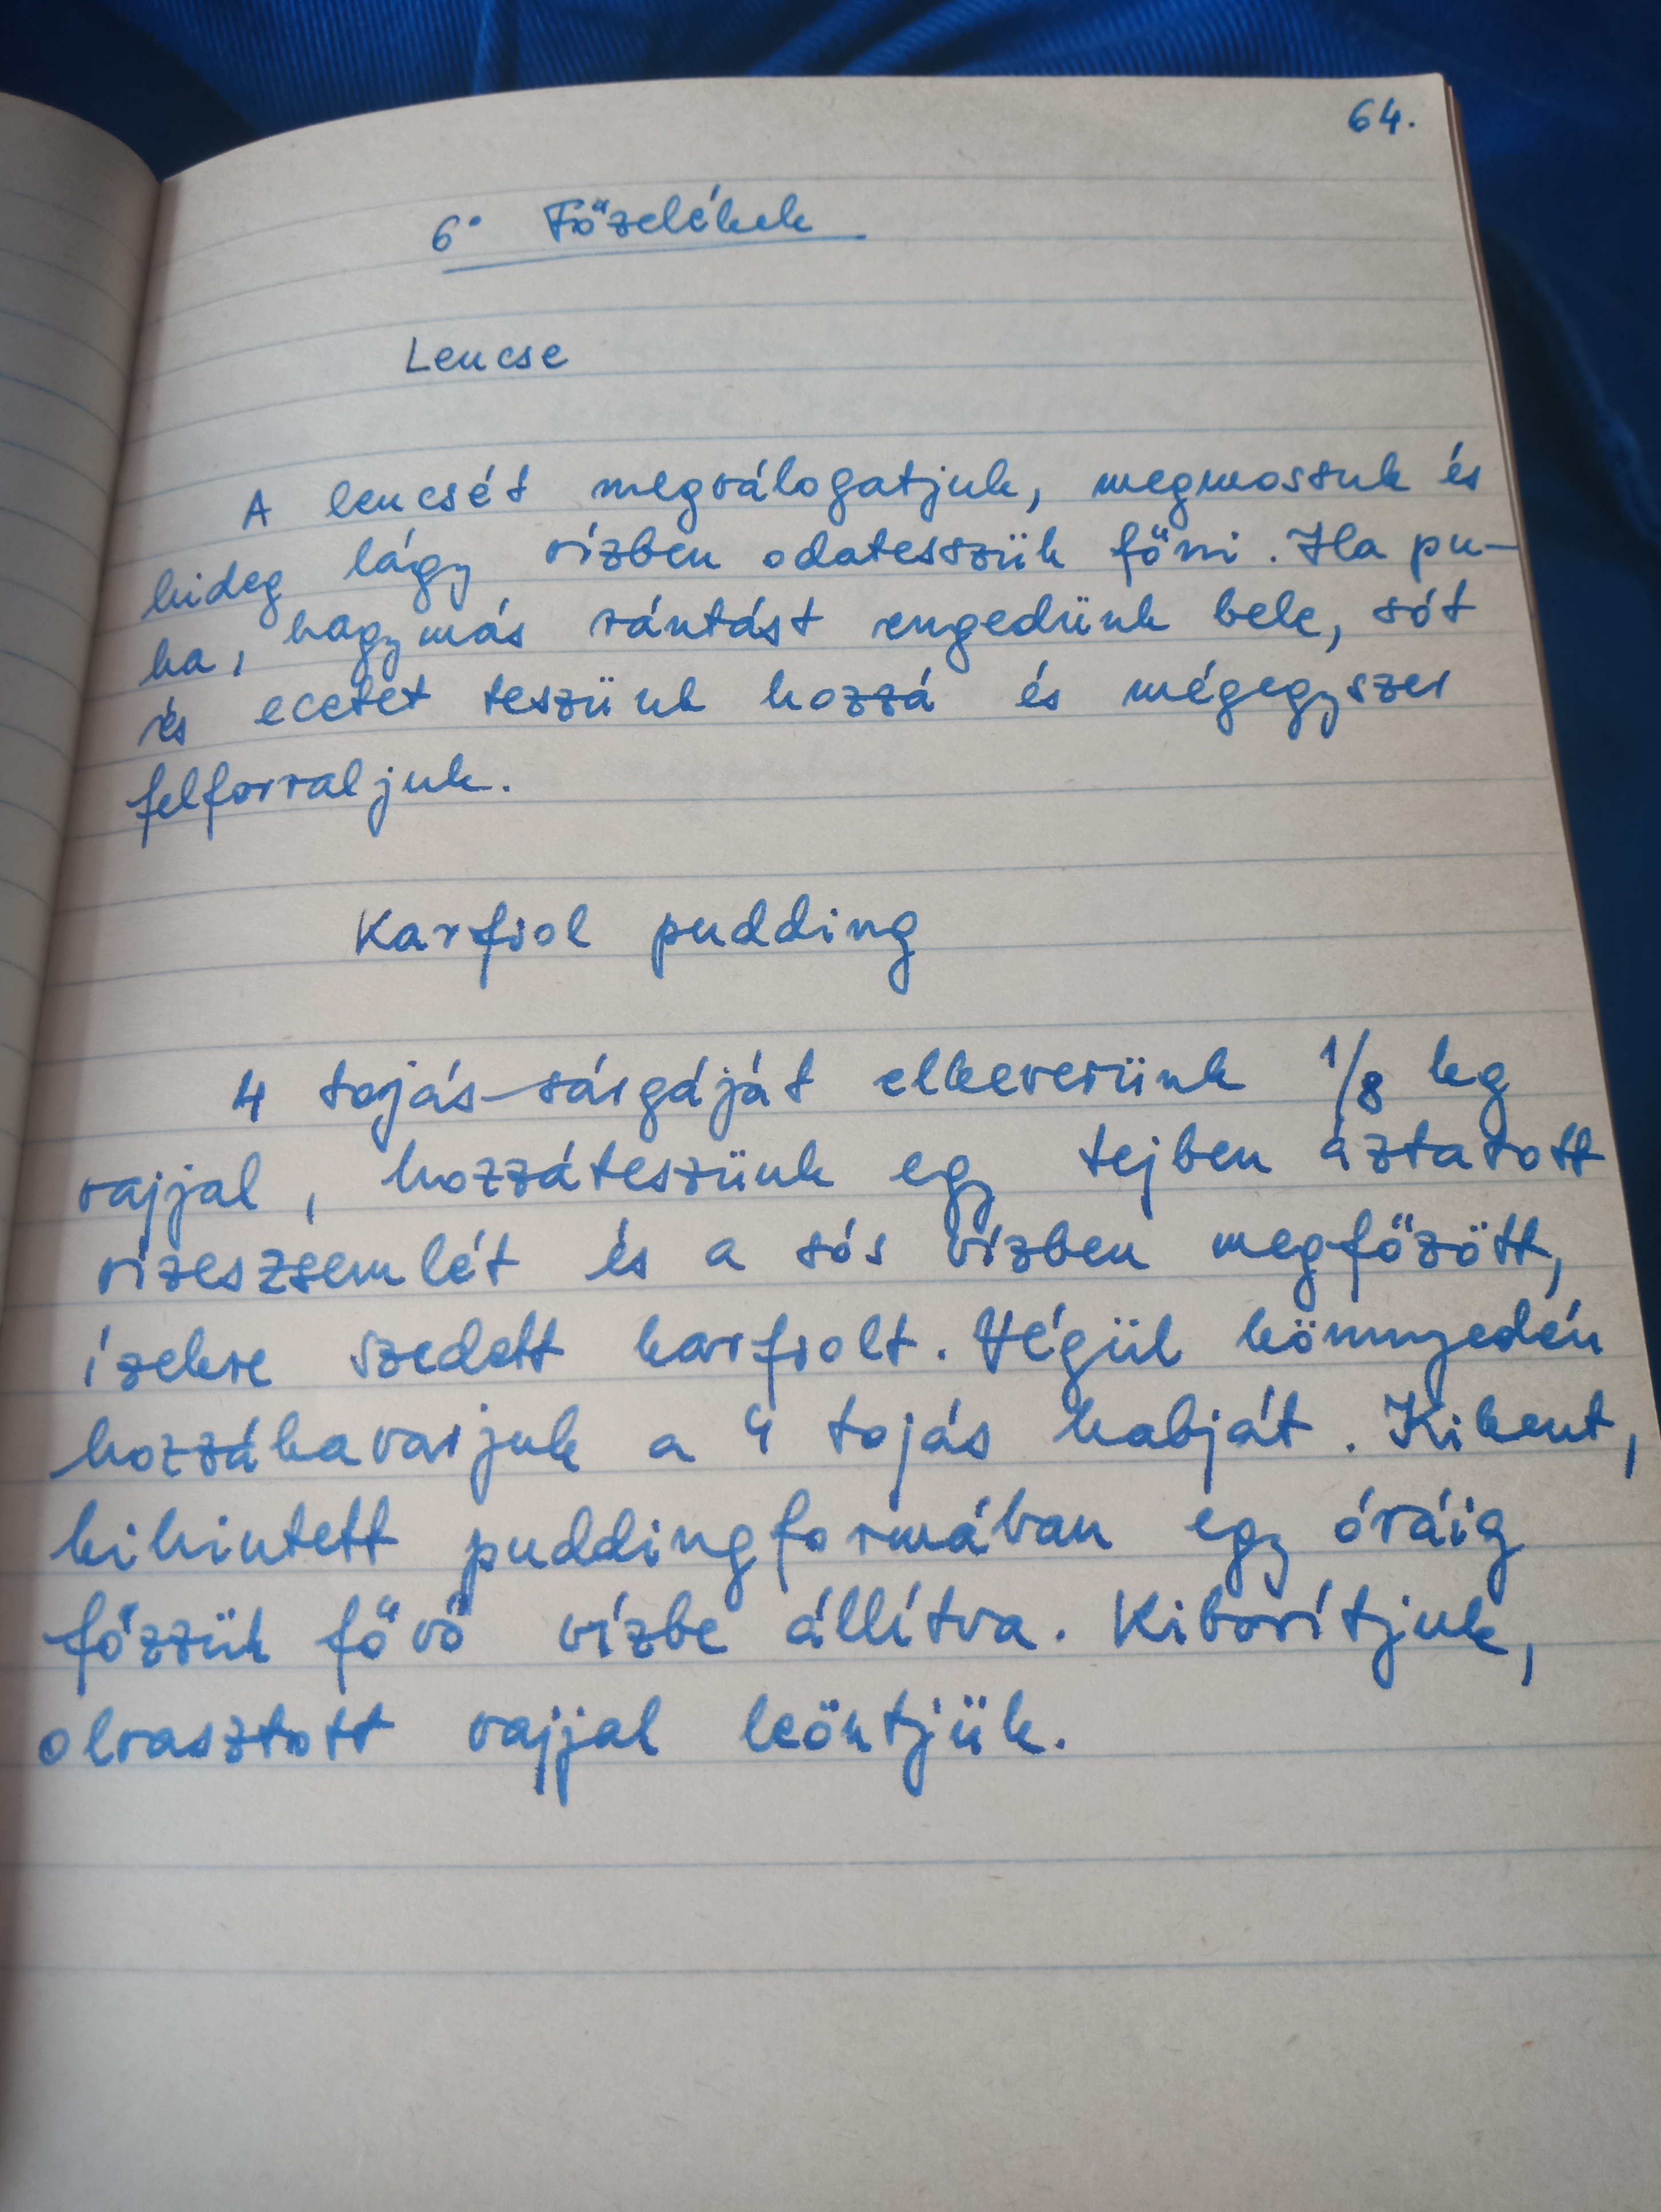 64.
6. Főzelékek
Lencse
A lencsét megválogatjuk, megmossuk és
hideg lágy vízben odatesszük főni. Ha pu-
ha, hagymás rántást engedünk bele, sót
és ecetet teszünk hozzá és mégegyszer
felforraljuk.
Karfiol pudding
4 tojás-sárgáját elkeverünk 1/8 kg
vajjal, hozzáteszünk egy tejben áztatott
vizeszsemlét és a sós vízben megfőzött,
ízekre szedett karfiolt. Végül könnyedén
hozzákavarjuk a 4 tojás habját. Kikent,
kihintett puddingformában egy óráig
főzzük fövő vízbe állítva. Kiborítjuk,
olvasztott vajjal leöntjük.